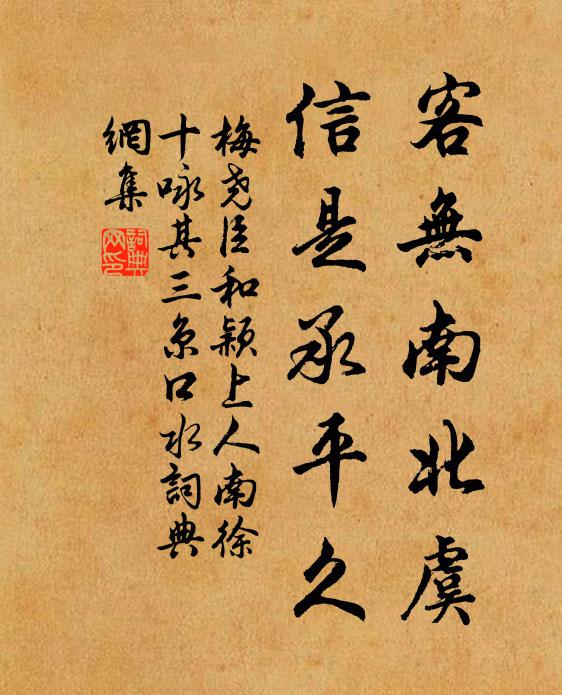 客無南北虞
信是承平久
梅堯臣和穎上人南徐
十咏其三京口水詞典
網集
詞典
网印